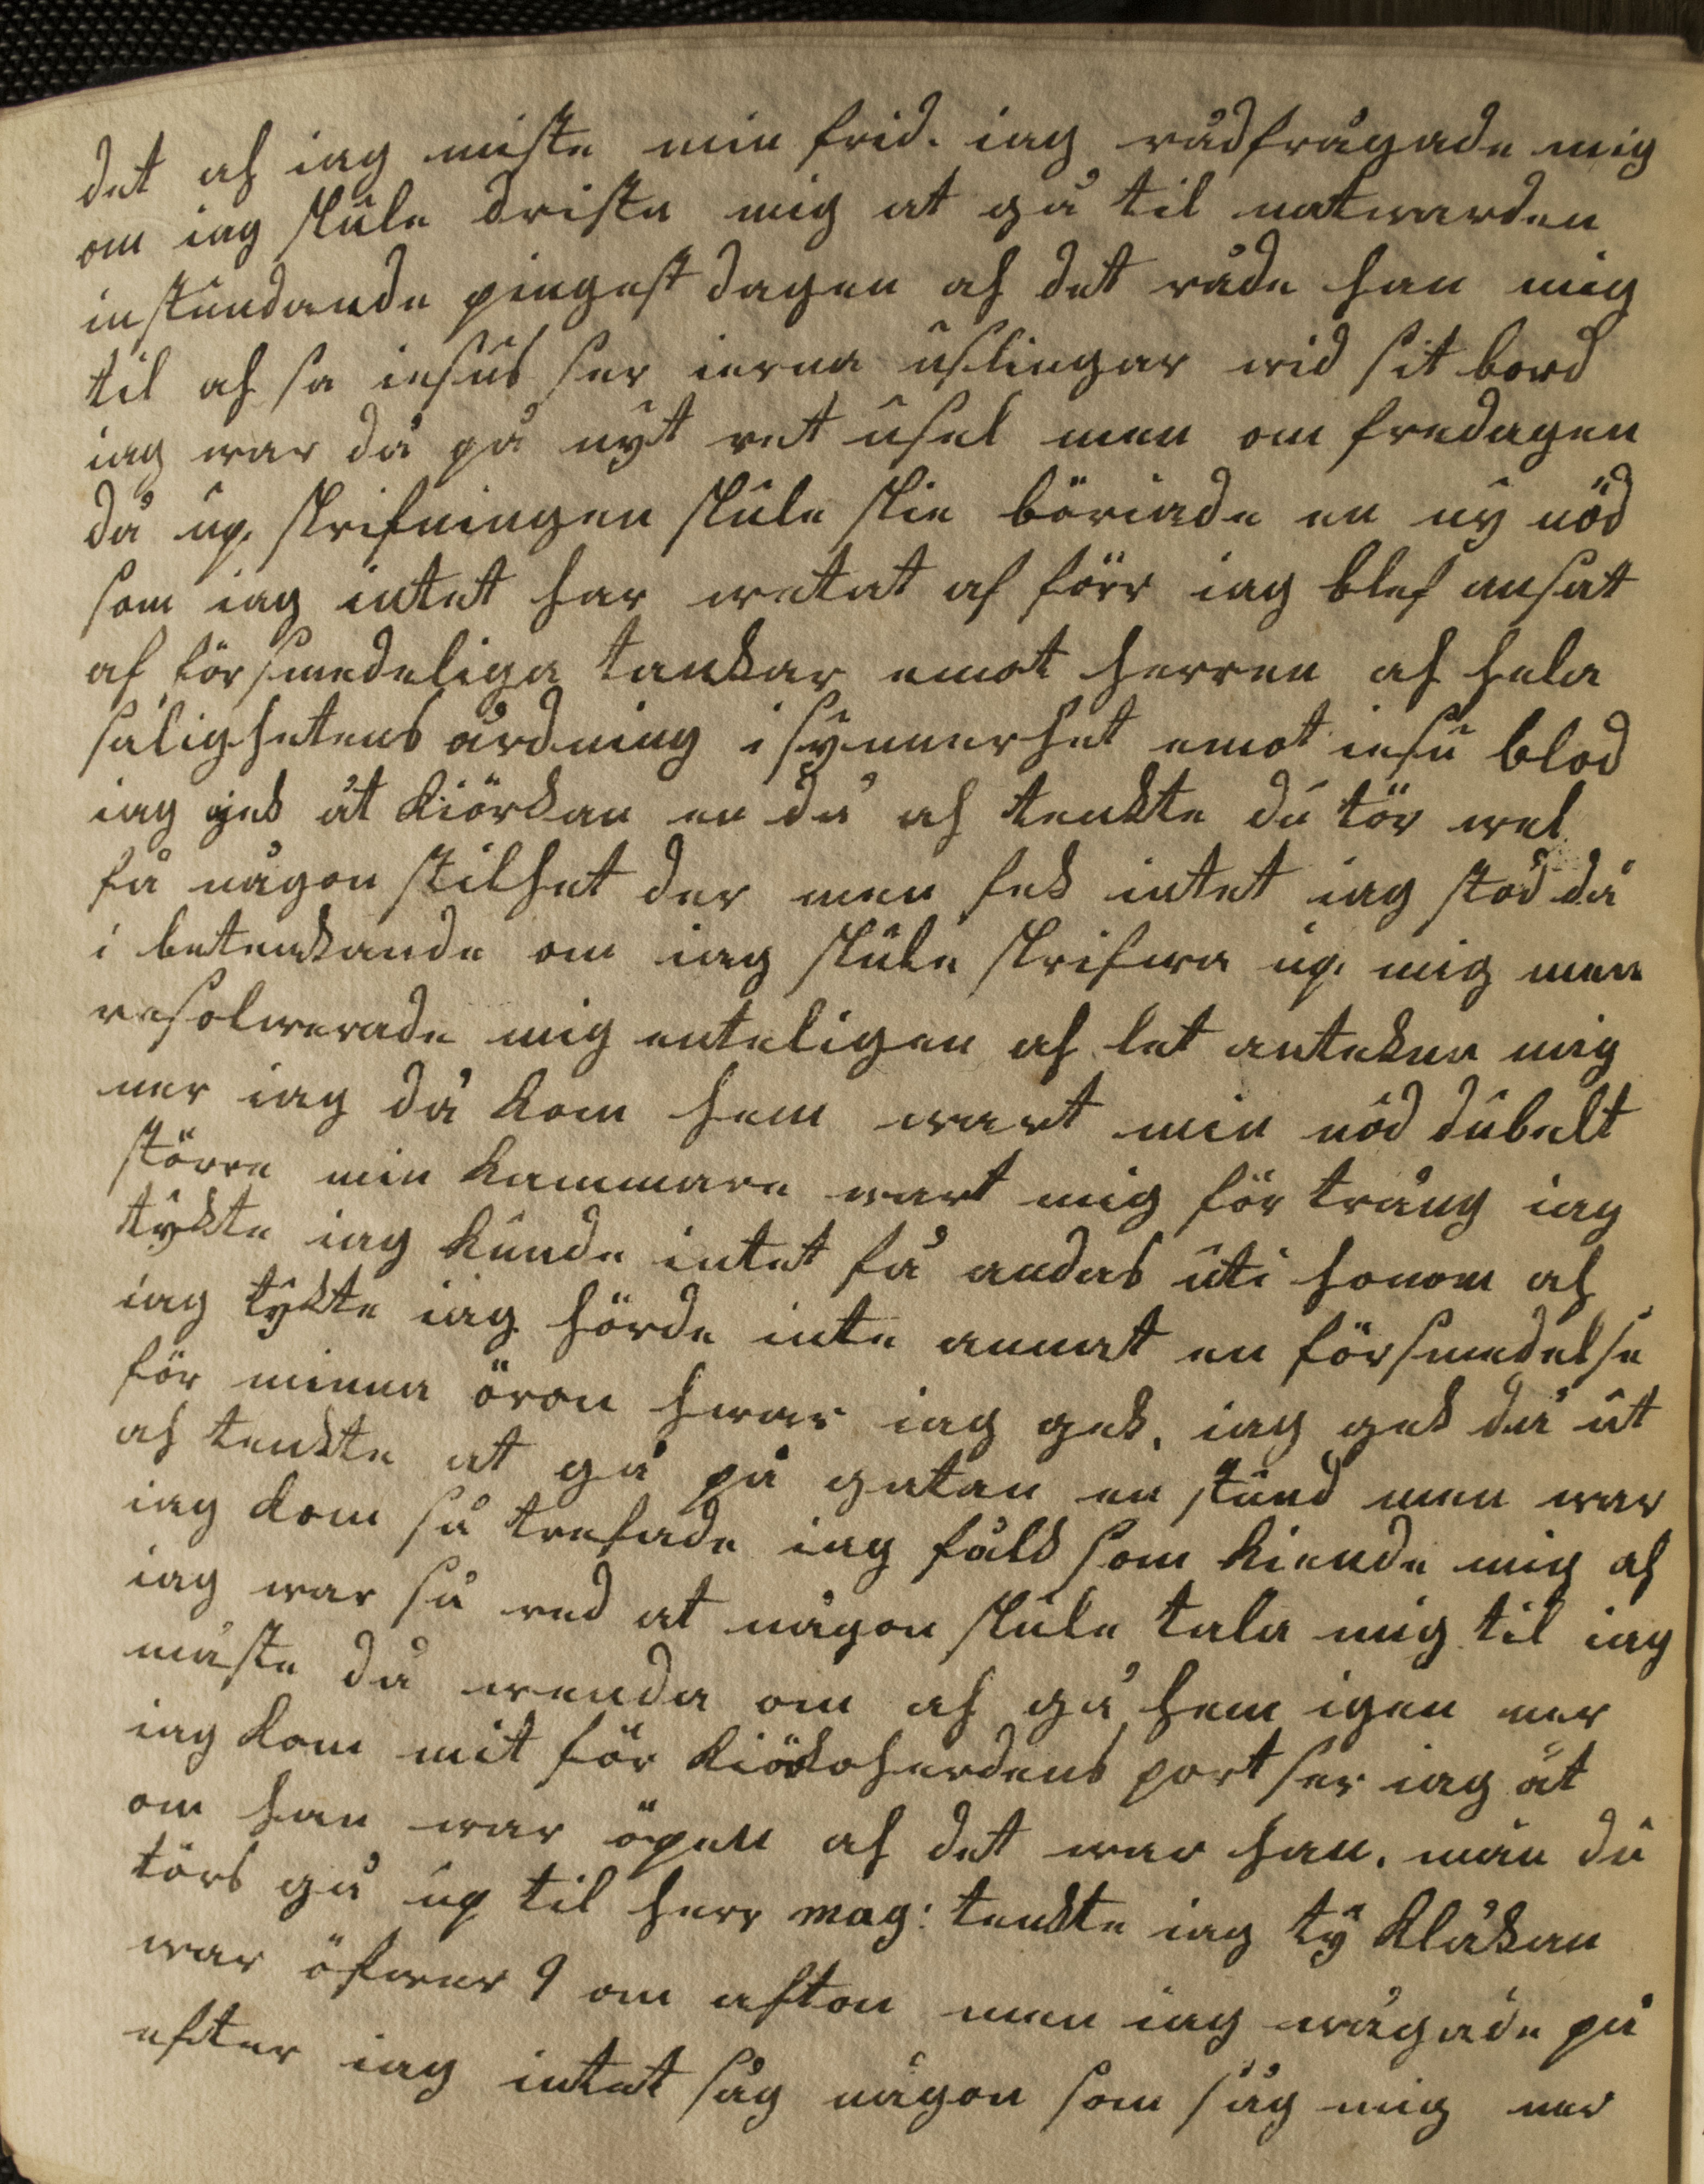 det ah iag miste min frid. iag rådfrågade mig
om iag skule drista mig at gå til natwarden
instundande pingest dagen ah det råde han mig
til ah sa iesus ser ierna uslingar wid sit bord
iag war då på nyt ret usel men om fredagen
då up. skrifningen skule skie böriade en ny nöd
som iag intet har wetat af förr iag blef ansat
af försmedeliga tankar emot herren ah hela
salighetens årdning i synnerhet emot iesu blod
iag gek åt kiörkan en då ah tenkte du tör wel
få någon stilhet der men fek intet iag stod då
i betenkande om iag skule skrifwa up. mig men
resolwerade mig enteligen ah let antekna mig
ner iag då kom hem wart min nöd dubelt
större min kammare wart mig för trång iag
tykte iag kunde intet få andas uti honom ah
iag tykte iag hörde inte annat en försmedelse
för minna öron hwar iag gek. iag gek då ut
ah tenkte at gå på gatan en stund men war
iag kom så trefade iag fålk som kiende mig ah
iag war så red at någon skule tala mig til iag
måste då wenda om ah gå hem igen ner
iag kom mit för kiörkoherdens port ser iag åt
om han war öpen ah det war han. mån du
törs gå up til herr mag: tenkte iag ty klåkan
war öfwer 9 om afton men iag wågade på
efter iag intet såg någon som såg mig ner